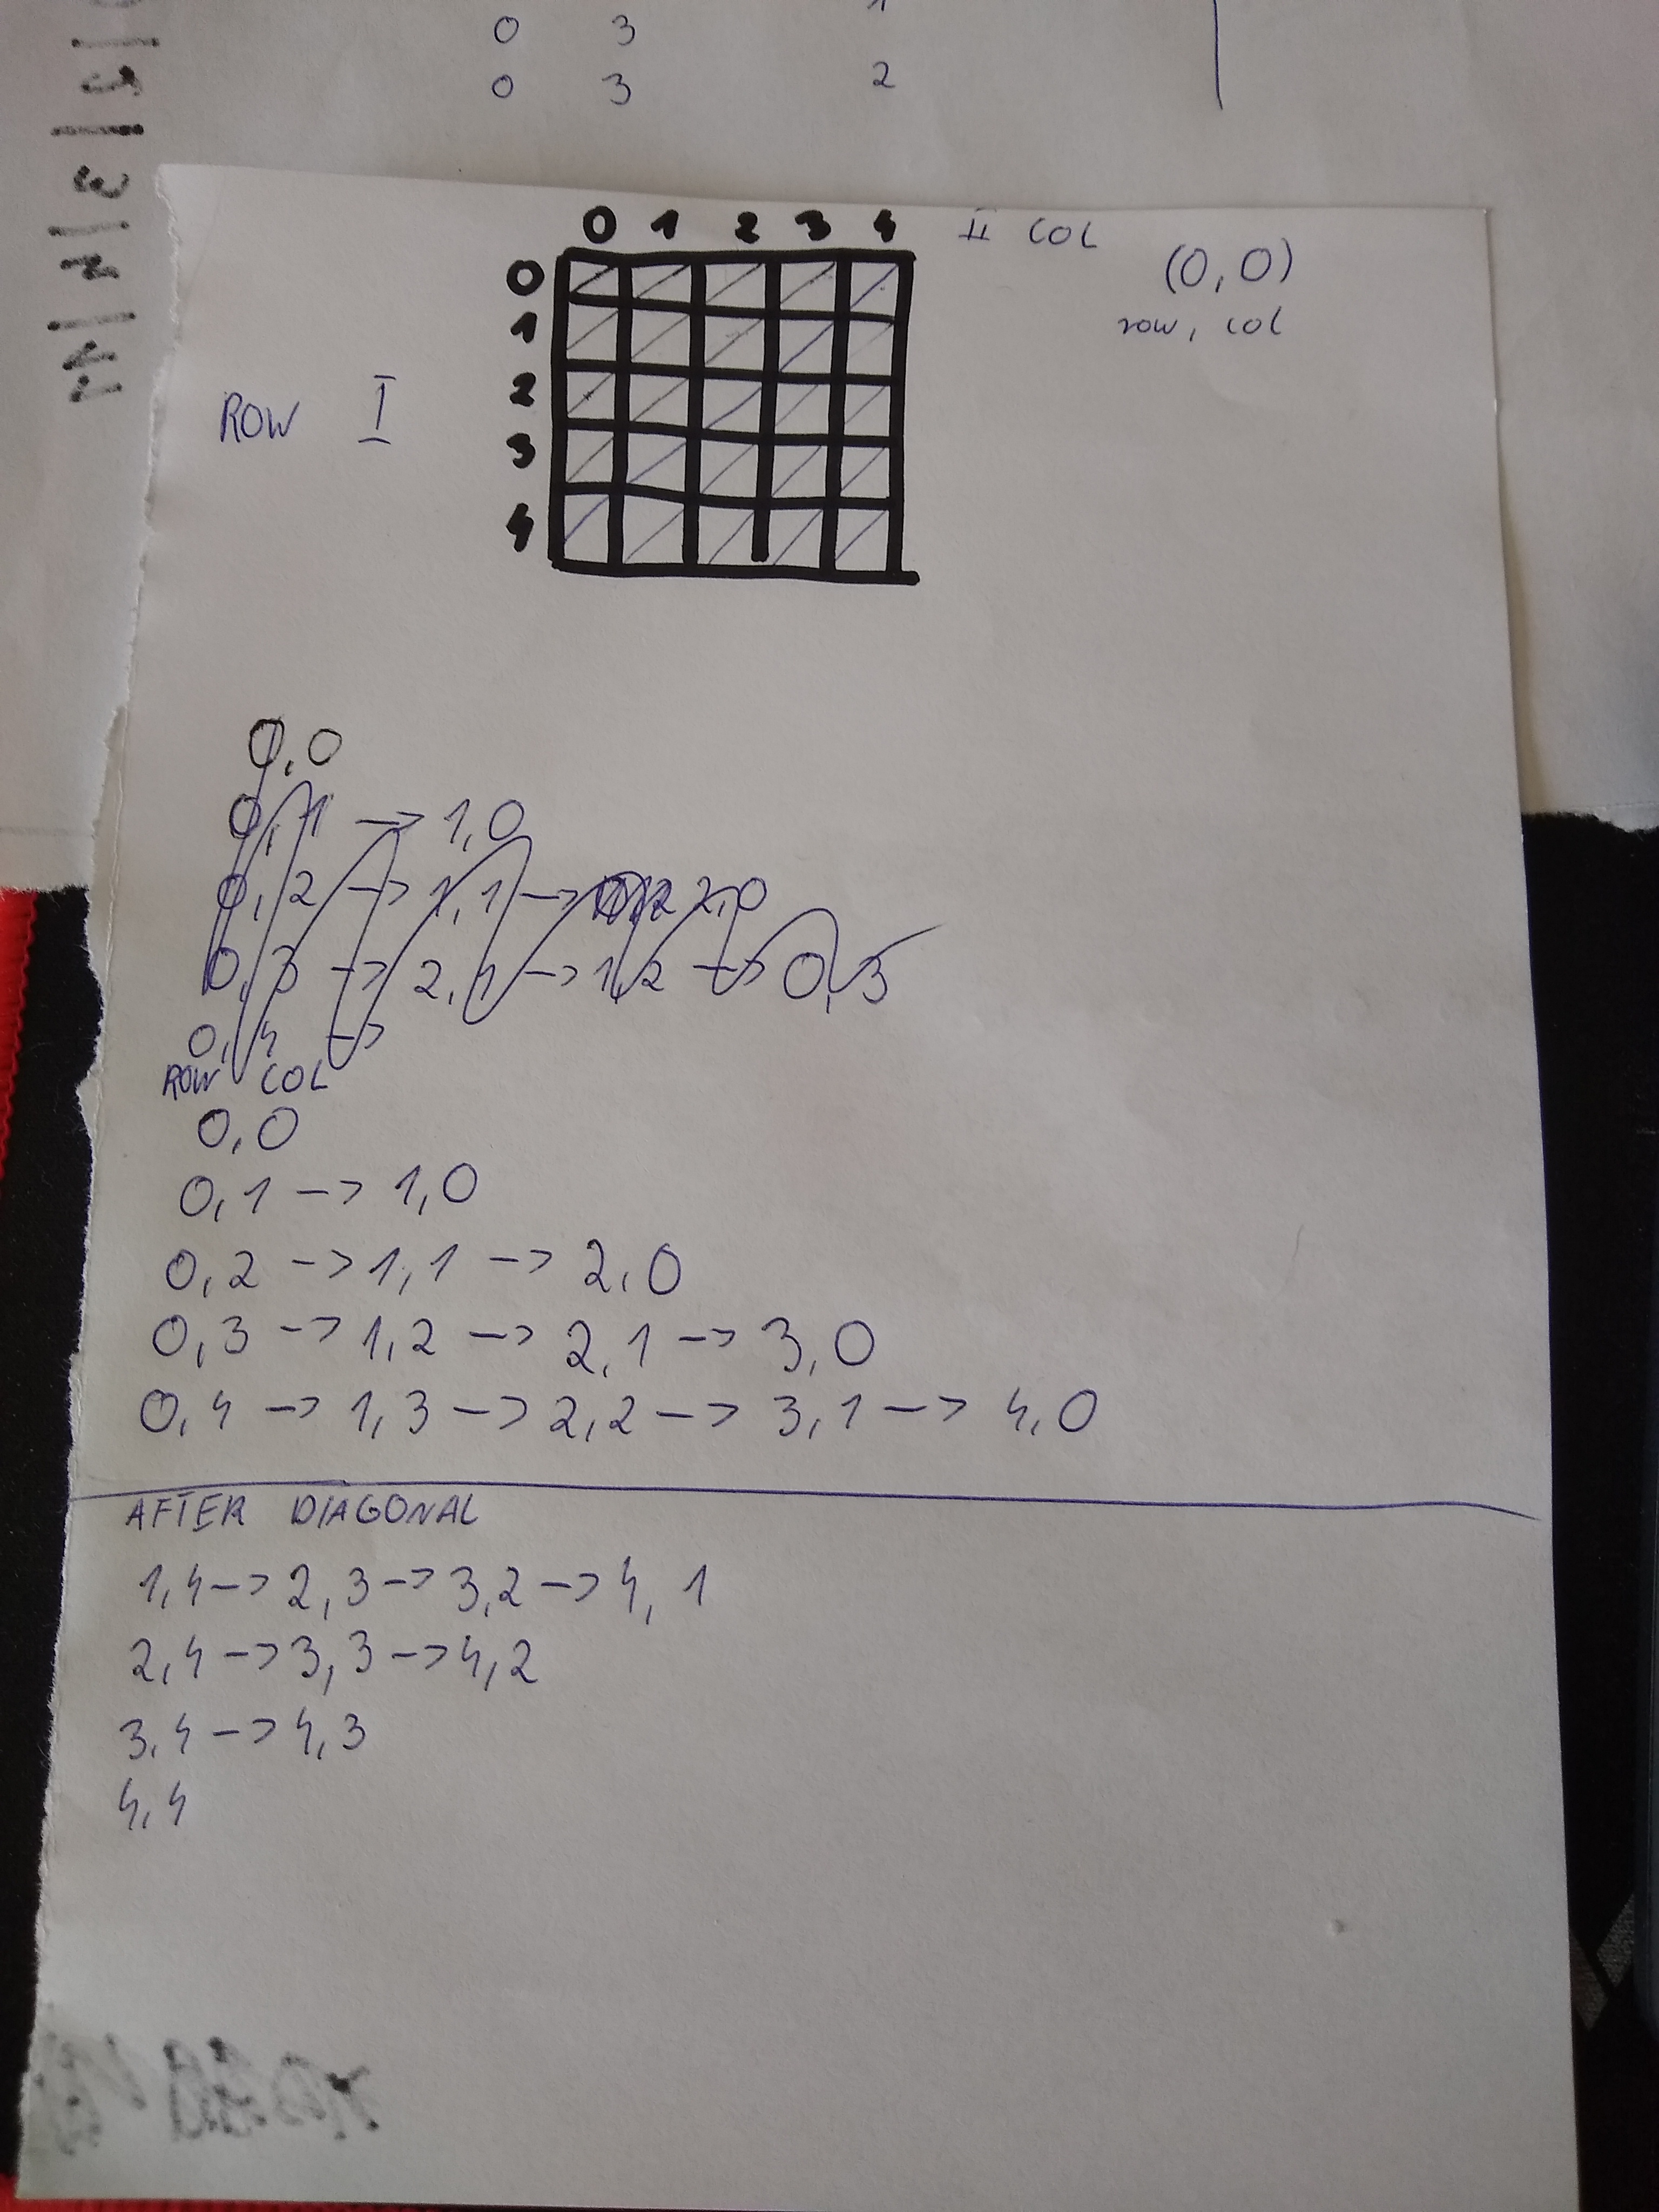 0 3
0 3 2
0 1 2 3 4 II COL
(0,0)
row, col
0
1
2
3
4
ROW I
0,0
0,1 -> 1,0
0,2 -> 1,1 -> 2,0
0,3 -> 2,1 -> 1,2 -> 0,3
0,4 ->
ROW COL
0,0
0,1 -> 1,0
0,2 -> 1,1 -> 2,0
0,3 -> 1,2 -> 2,1 -> 3,0
0,4 -> 1,3 -> 2,2 -> 3,1 -> 4,0
AFTER DIAGONAL
1,4 -> 2,3 -> 3,2 -> 4,1
2,4 -> 3,3 -> 4,2
3,4 -> 4,3
4,4